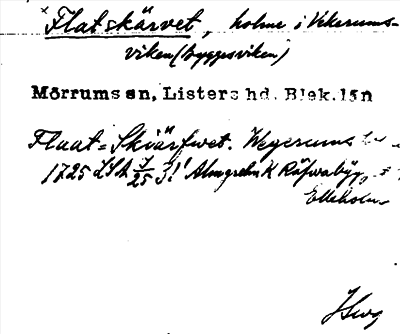 Flatskärvet, holme i Vekerums-
viken (Byggesviken)
Mörrums sn, Listers hd. Blek. län
Fluat=Skiärfwet. Wegerums
1725 LSA J/25 3:1 Almgrehn K Räfwabyg,
Elleholm
JSwg